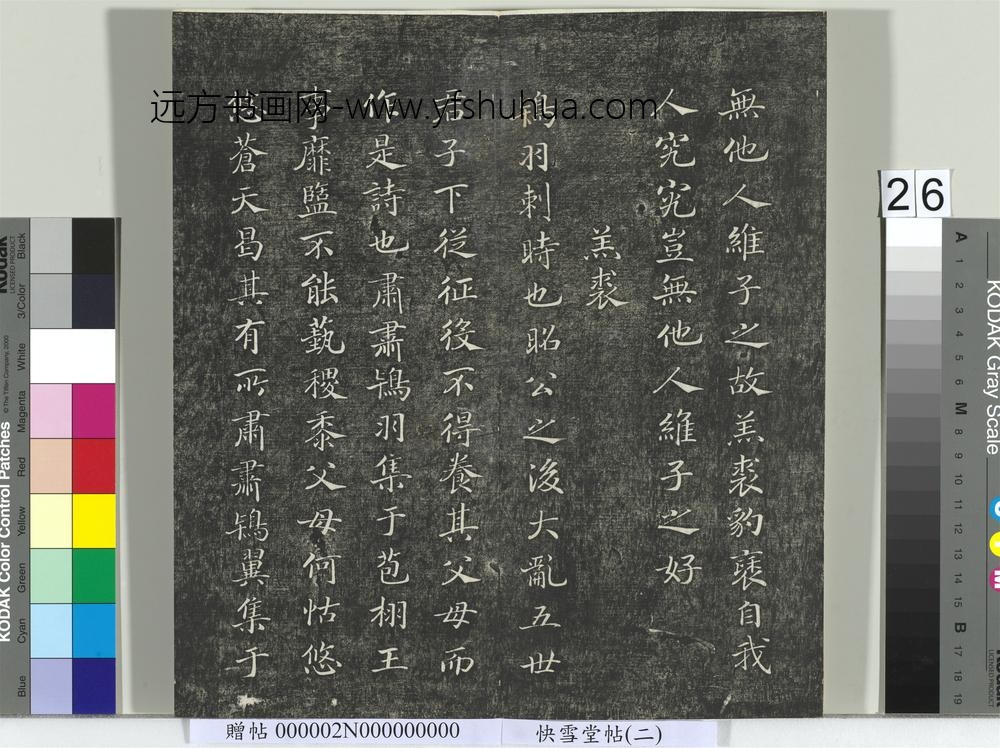 無他人維子之故羔裘豹褎自我
人究究豈無他人維子之好
羔裘
鴇羽刺時也昭公之後大亂五世
君子下從征役不得養其父母而
作是詩也肅肅鴇羽集于苞栩王
事靡盬不能蓺稷黍父母何怙悠
悠蒼天曷其有所肅肅鴇翼集于
远方书画网-www.yfshuhua.com
26
贈帖 000002N000000000
快雪堂帖(二)
KODAK Color Control Patches
© The Tiffen Company, 2000
Kodak
LICENSED PRODUCT
Blue
Cyan
Green
Yellow
Red
Magenta
White
3/Color
Black
KODAK Gray Scale
A 1 2 3 4 5 6 M 8 9 10 11 12 13 14 15 B 17 18 19